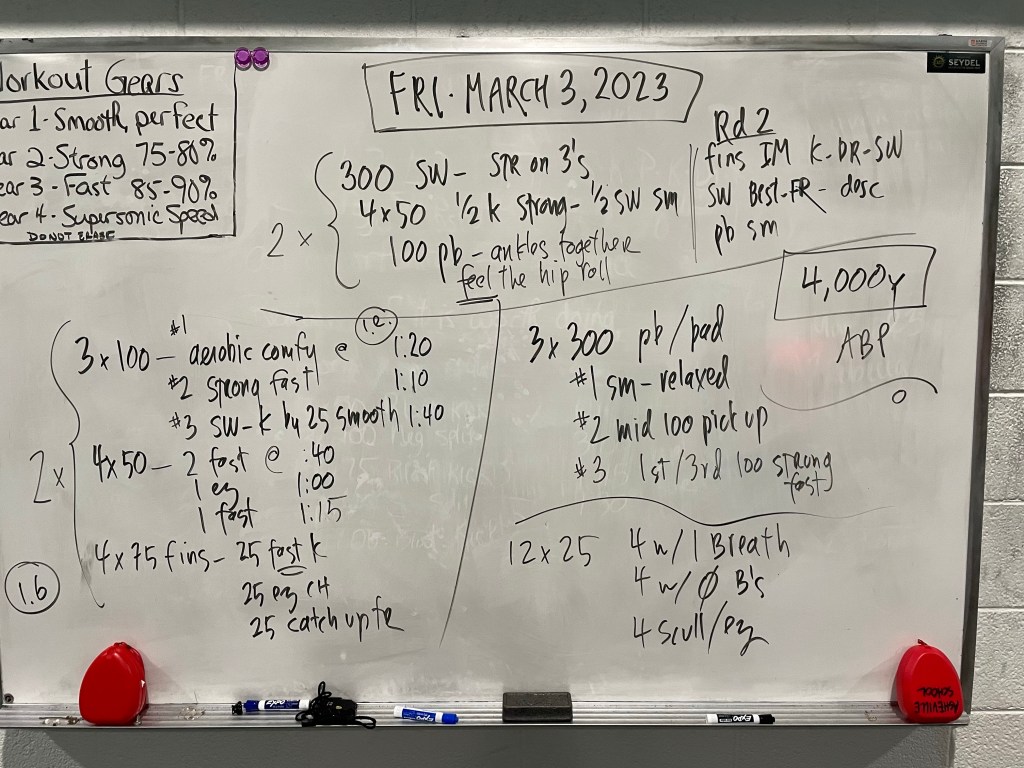 Workout Gears
ear 1 - Smooth, perfect
ear 2 - Strong 75-80%
ear 3 - Fast 85-90%
ear 4 - Supersonic Speed
DO NOT ERASE
SEYDEL
FRI. MARCH 3, 2023
2 x
300 SW - SPR on 3's
4x50 1/2 K Strong - 1/2 SW sm
100 pb - ankles together
feel the hip roll
Rd 2
fins IM K-DR-SW
SW Best-FR - desc
pb sm
4,000y
ABP
1.2
2x
#1
3 x 100 - aerobic comfy @ 1:20
#2 strong fast 1:10
#3 SW-K by 25 smooth 1:40
4x50 - 2 fast @ :40
1 ez 1:00
1 fast 1:15
4 x 75 fins - 25 fast k
25 ez CH
25 catch up fr
1.6
3 x 300 pb/pad
#1 sm - relaxed
#2 mid 100 pick up
#3 1st/3rd 100 strong
fast
12 x 25 4 w/ 1 Breath
4 w/ Ø B's
4 Scull/ez
EXPO
EXPO
EXPO
ASHEVILLE
SCHOOL